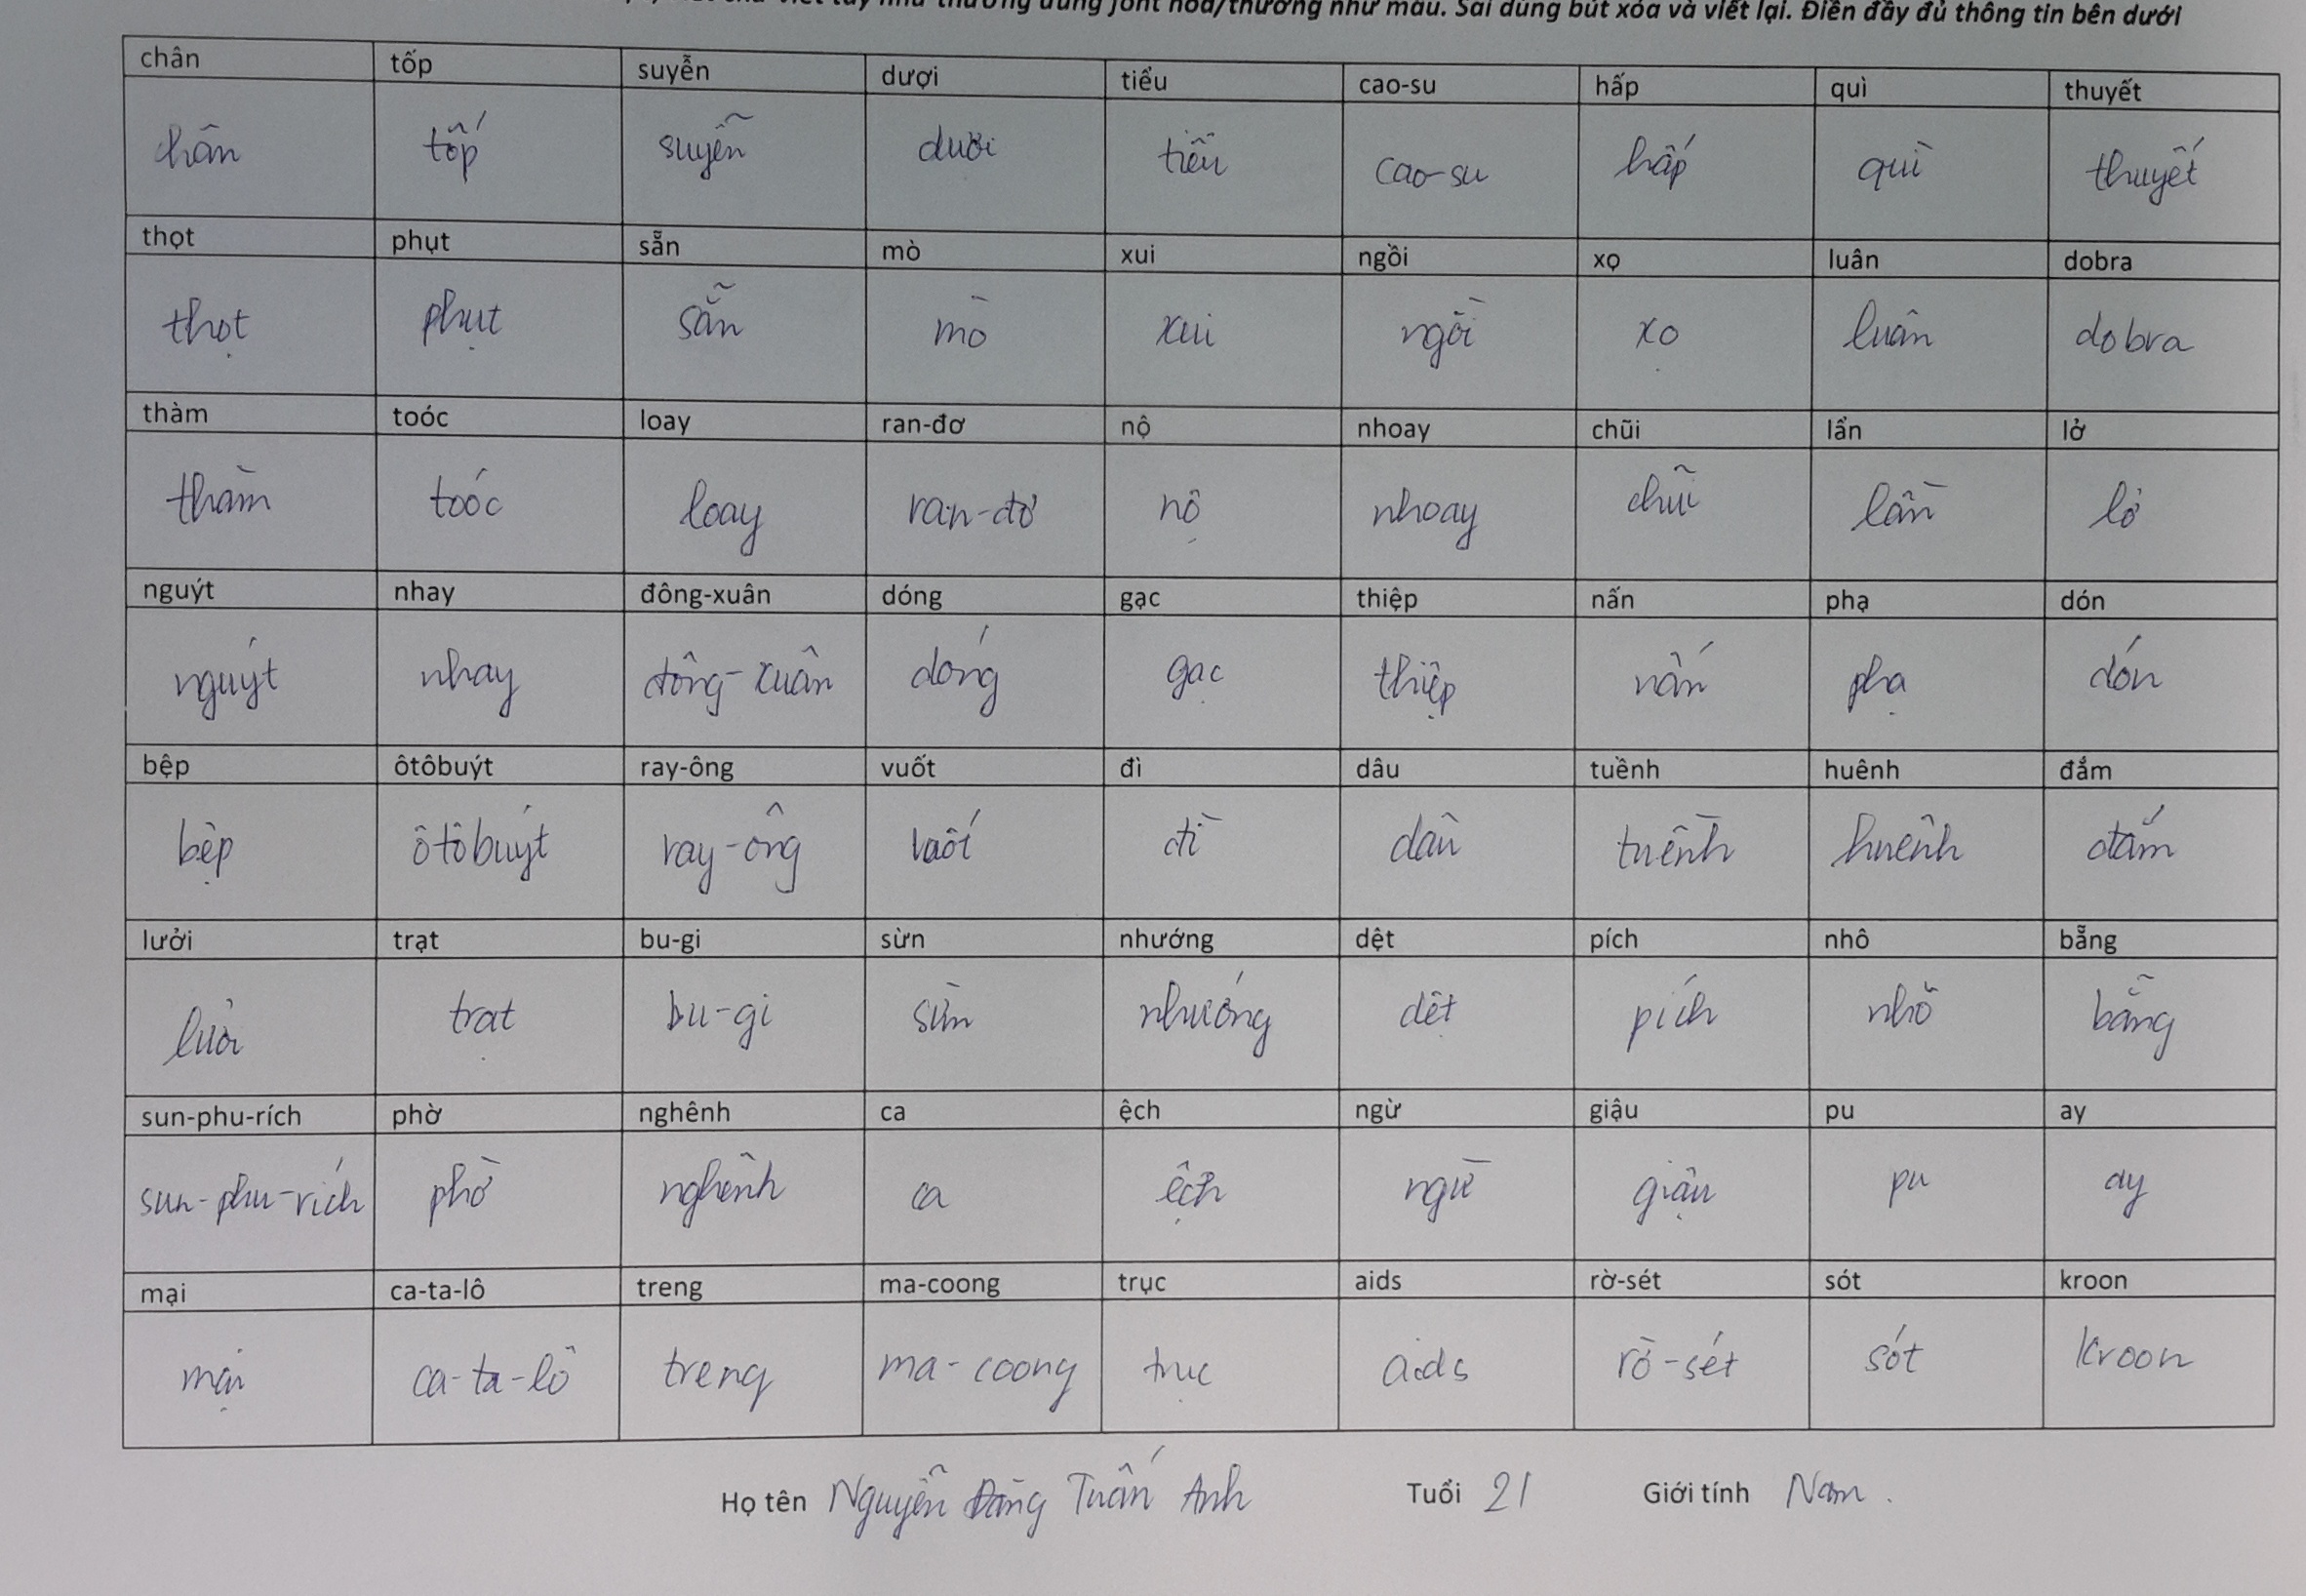 viết tay như thường dùng font hoa/thường như mẫu. Sai dùng bút xóa và viết lại. Điền đầy đủ thông tin bên dưới
chân tốp suyễn dượi tiểu cao-su hấp quì thuyết
chân tốp suyễn dười tiểu cao-su hấp quì thuyết
thọt phụt sẵn mò xui ngồi xọ luân dobra
thọt phụt sẵn mò xui ngồi xọ luân dobra
thàm toóc loay ran-đơ nộ nhoay chũi lẩn lở
thàm toóc loay ran-đơ nộ nhoay chũi lần lở
nguýt nhay đông-xuân dóng gạc thiệp nấn phạ dón
nguýt nhay đông-xuân dóng gạc thiệp nấn phạ dón
bệp ôtôbuýt ray-ông vuốt đì dâu tuềnh huênh đắm
bệp ôtôbuýt ray-ông vuốt đì dâu tuềnh huênh đắm
lưởi trạt bu-gi sừn nhướng dệt pích nhô bẵng
lưởi trạt bu-gi sừn nhướng dệt pích nhô bẵng
sun-phu-rích phờ nghênh ca ệch ngừ giậu pu ay
sun-phu-rích phờ nghênh ca ệch ngừ giậu pu ay
mại ca-ta-lô treng ma-coong trục aids rờ-sét sót kroon
mại ca-ta-lô treng ma-coong trục aids rờ-sét sót kroon
Họ tên Nguyễn Đăng Tuấn Anh Tuổi 21 Giới tính Nam.